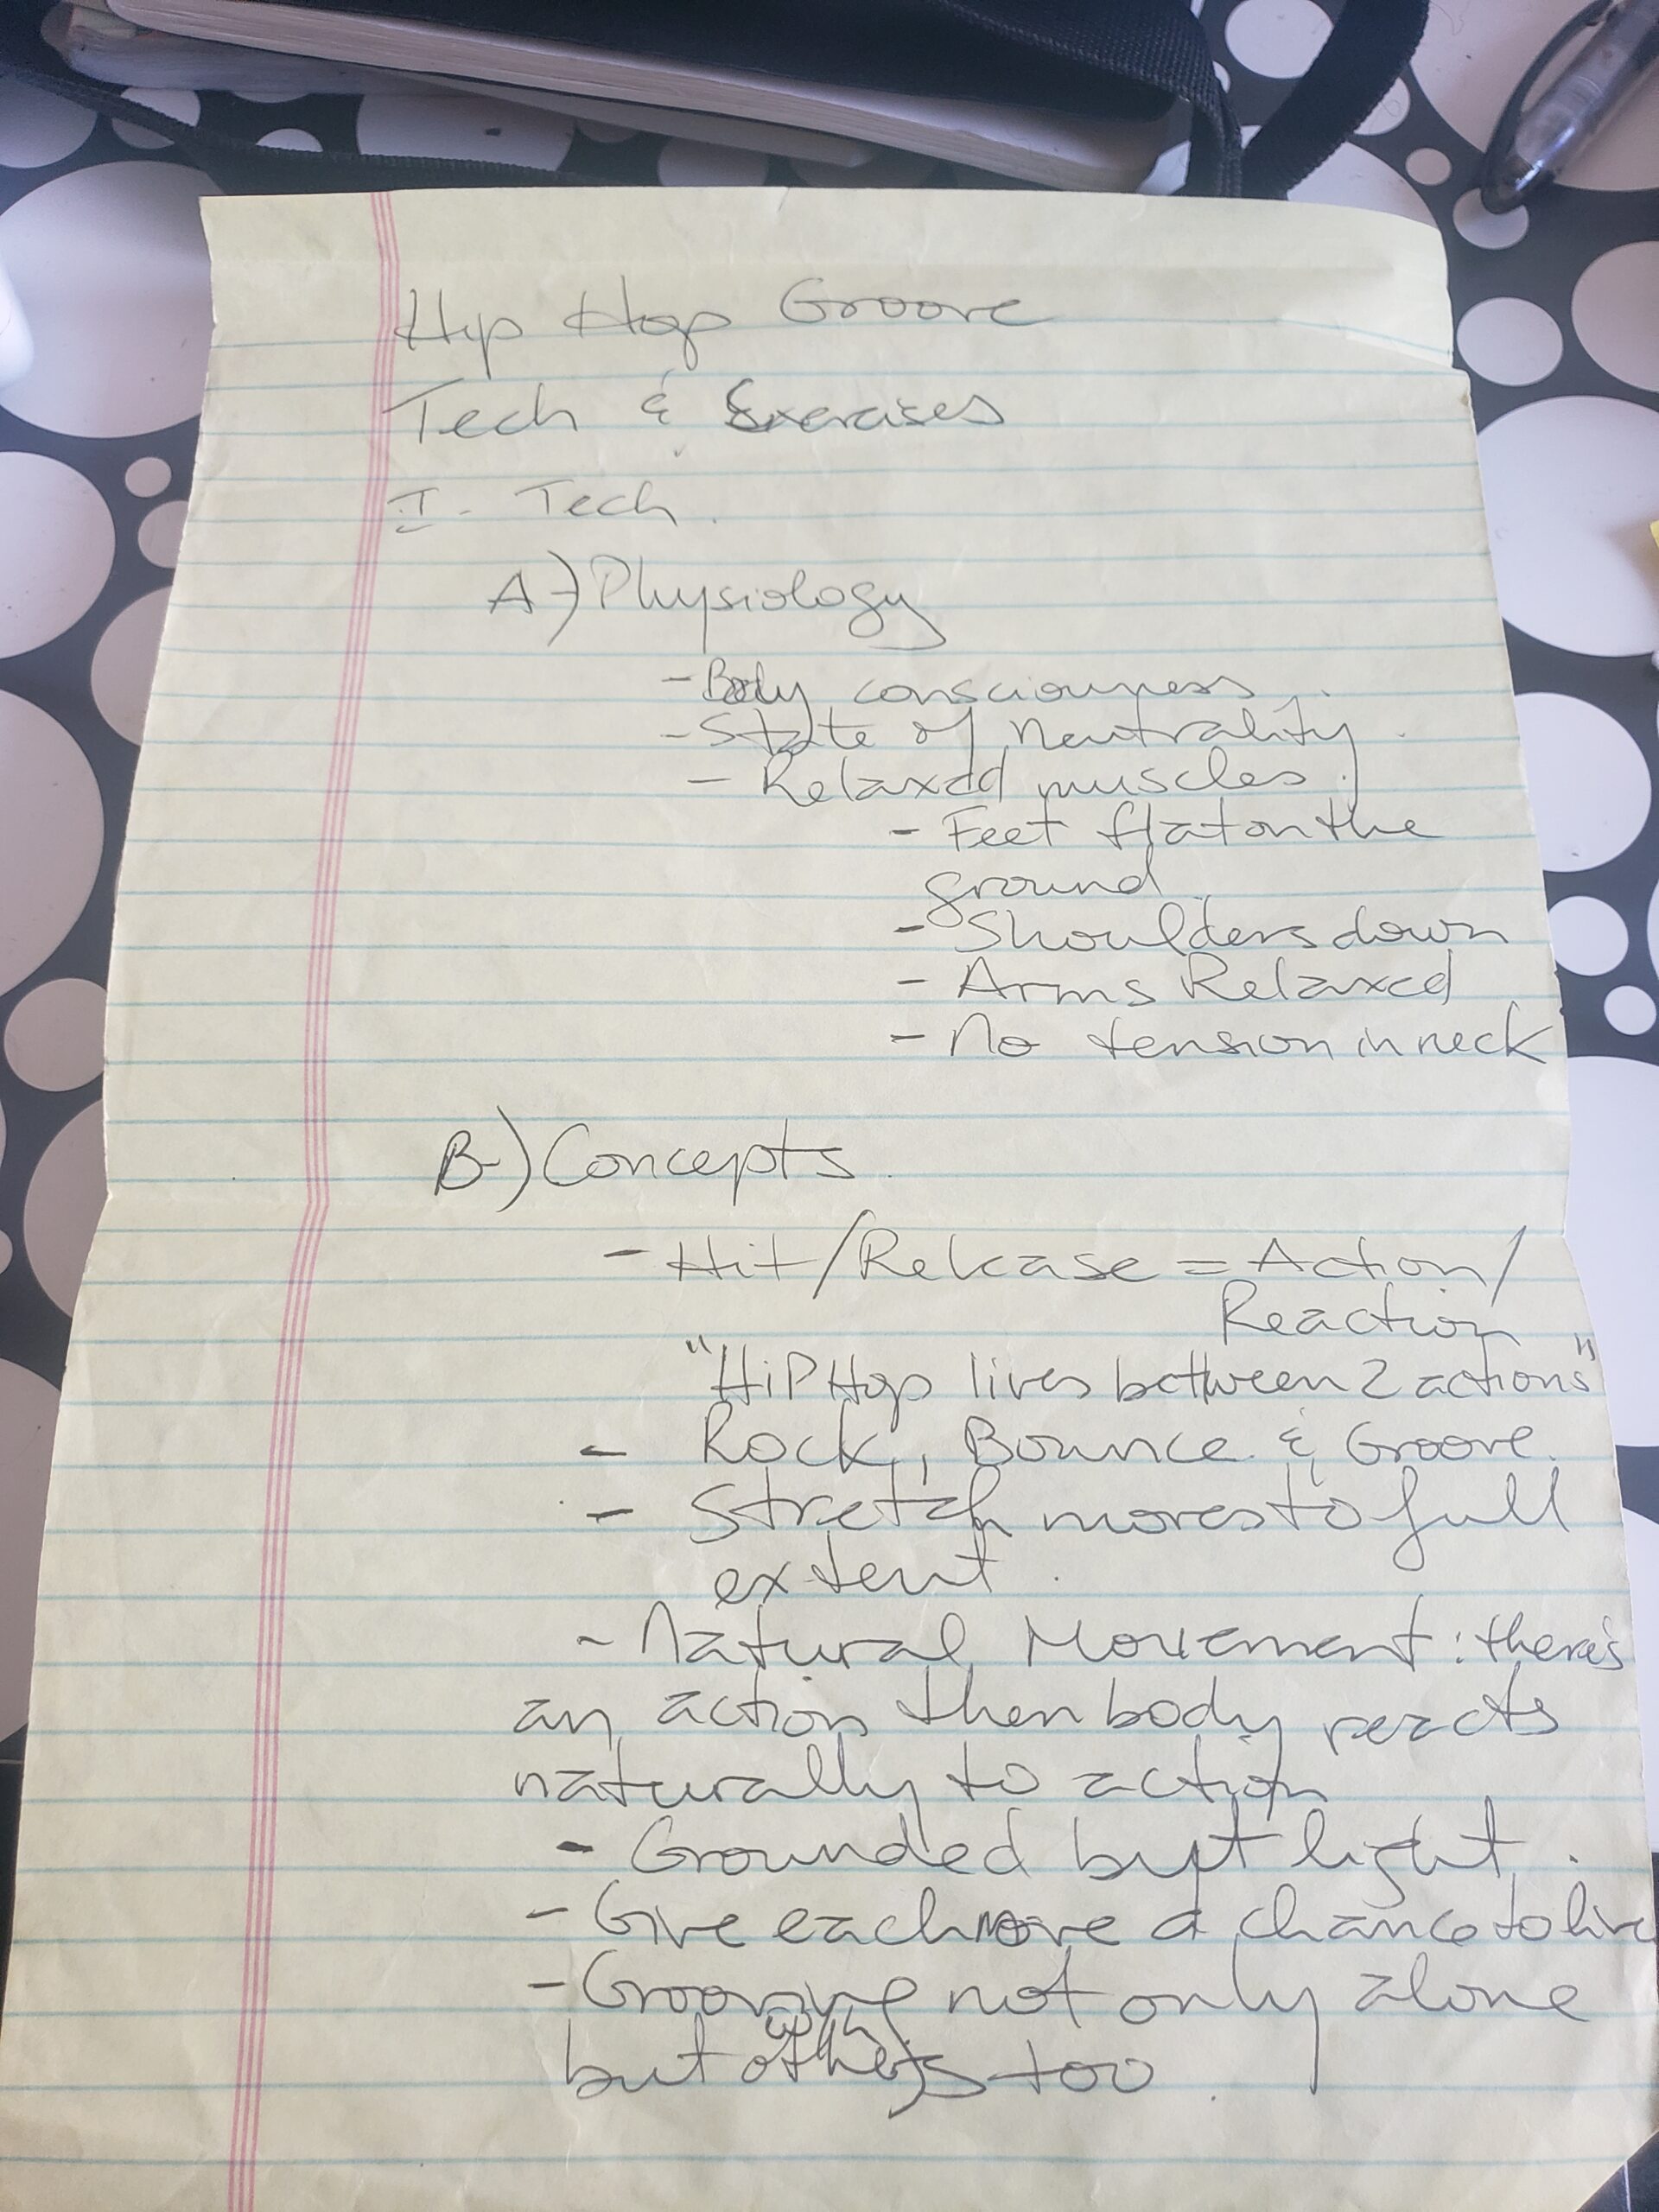 Hip Hop Groove
Tech & Exercises
I. Tech.
A) Physiology
- Body consciousness.
- State of Neutrality.
- Relaxed muscles.
- Feet flat on the
ground.
- Shoulders down
- Arms Relaxed
- No tension in neck
B) Concepts.
- Hit/Release = Action/
Reaction
"HiP Hop lives between 2 actions"
- Rock, Bounce & Groove.
- Stretch moves to full
extent.
- Natural Movement: there's
an action then body reacts
naturally to action
- Grounded but light.
- Give each move a chance to live
- Grooving not only alone
but with others too.